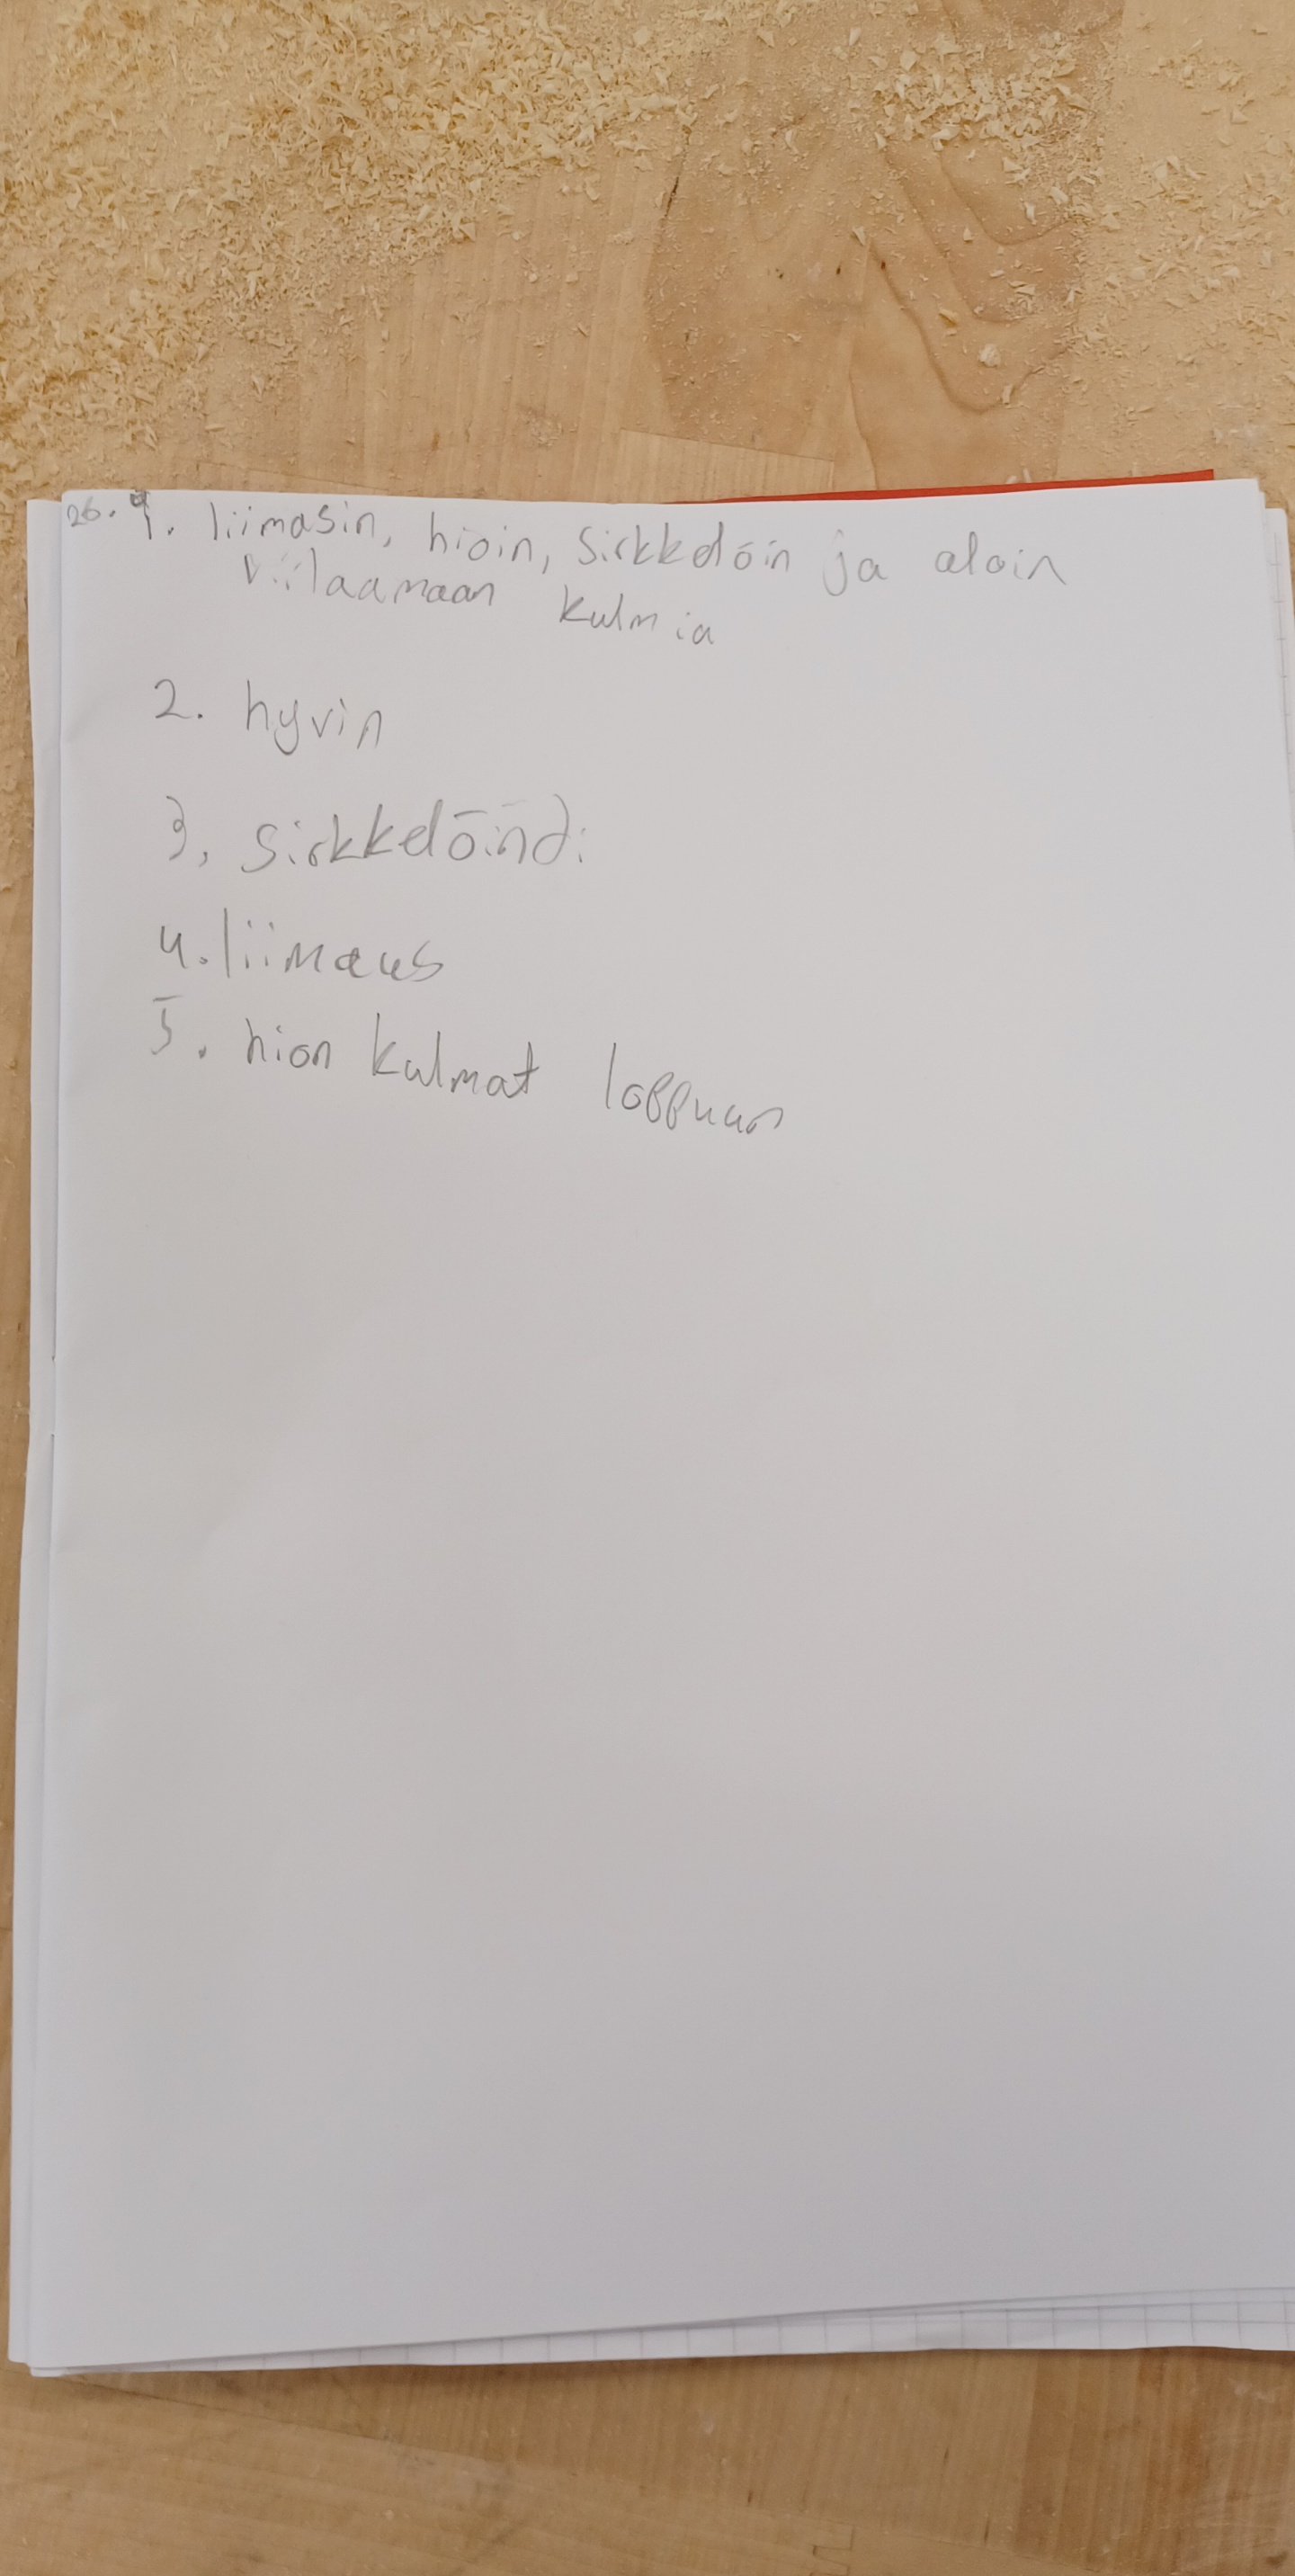 26.9. 1. liimasin, hioin, sirkkelöin ja aloin
viilaamaan kulmia
2. hyvin
3. sirkkelöindi
4. liimaus
5. hion kulmat loppuun